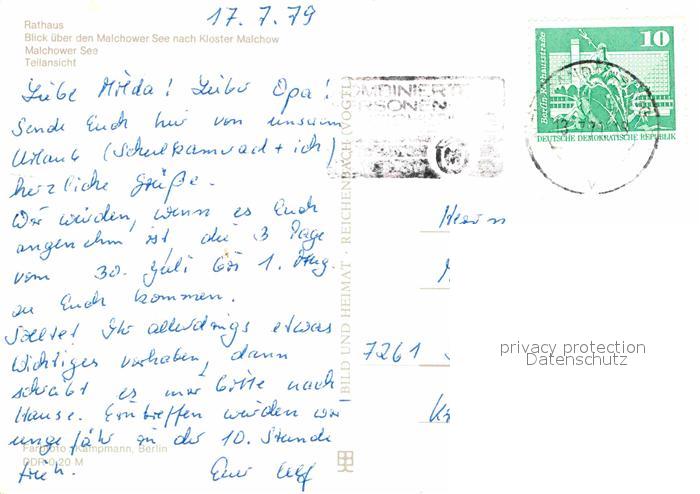 17.7.79
Rathaus
Blick über den Malchower See nach Kloster Malchow
Malchower See
Teilansicht
Liebe Milda! Lieber Opa!
Sende Euch hier von unserem
Urlaub (Schulkamerad + ich)
herzliche Grüße.
Wir würden, wenn es Euch
angenehm ist, die 3 Tage
vom 30. Juli bis 1. Aug.
zu Euch kommen.
Solltet Ihr allerdings etwas
Wichtiges vorhaben, dann
schreibt es mir bitte nach
Hause. Eintreffen würden wir
ungefähr in der 10. Stunde
früh. Euer Ulf
Farbfoto: Kampmann, Berlin
DDR 0,20 M
BILD UND HEIMAT · REICHENBACH (VOGTL
KOMBINIERT
PERSONEN
10
Berlin, Rathausstraße
DEUTSCHE DEMOKRATISCHE REPUBLIK
Herrn
7261
privacy protection
Datenschutz